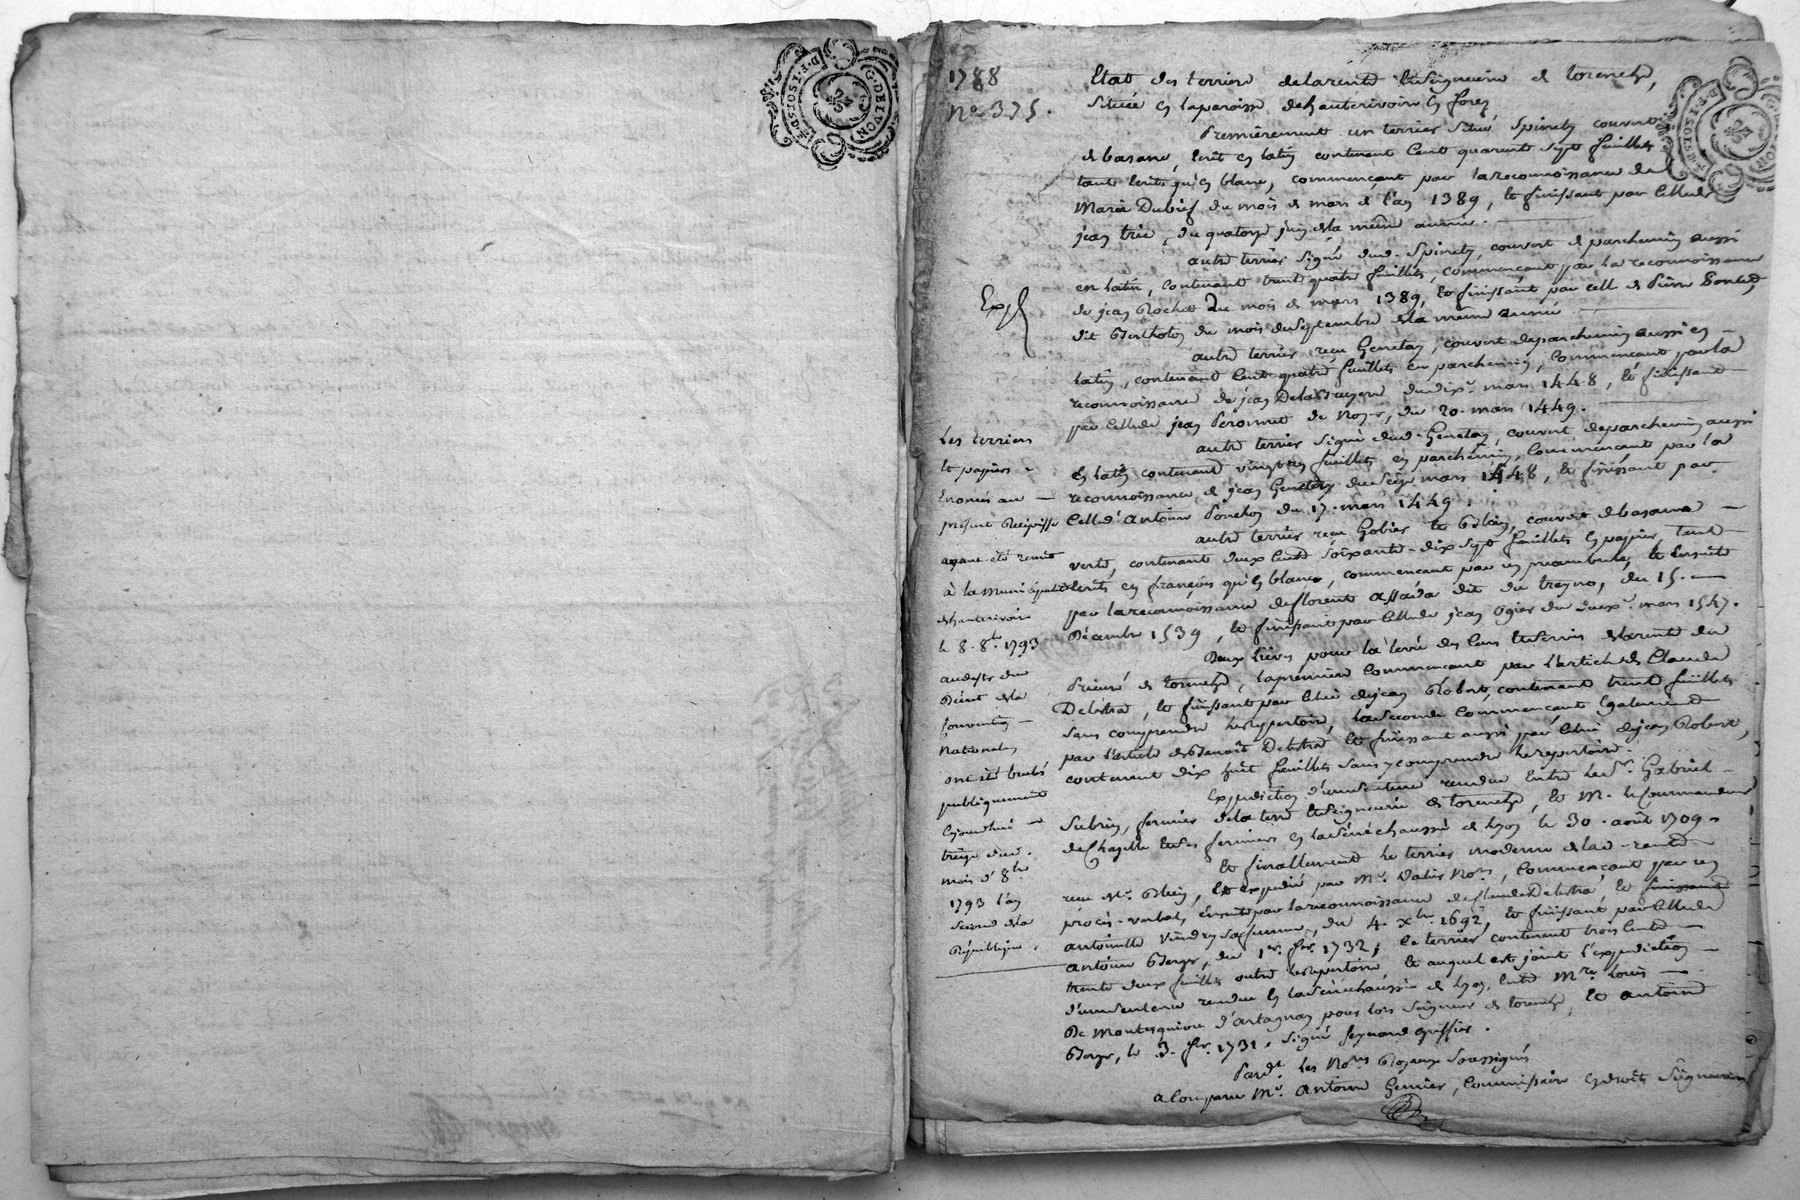 G. DE LYON
1788
No. 375.
Etat des terriers de la rente et seigneurie de torenche,
située en la paroisse de hauterivoire en forez
Premièrement un terrier signé Spinety couvert
de basanne, écrit en latin contenant cent quarente sept feuillets
tant écrits qu'en blanc, commençant par la reconnoissance de
Marie Dubief du mois de mars de l'an 1389, et finissant par celle de
jean trie, du quatorze juin de la même année.
autre terrier signé dud. Spinety, couvert de parchemin aussi
en latin, contenant trente quatre feuillets, commençant par la reconnoissance
de jean Rochet du mois de mars 1389, et finissant par celle de pierre
dit Bertholon du mois de septembre de la même année
autre terrier reçu Genetay, couvert de parchemin aussi en
latin, contenant cent quatre feuillets en parchemin, commençant par la
reconnoissance de jean du dix mars 1448, et finissant
par celle de jean Peronnet de du 20. mars 1449.
autre terrier signé dud. Genetay, couvert de parchemin aussi
en latin contenant feuillets en parchemin, commençant par la
reconnoissance de jean Genetay du seize mars 1448, et finissant par
celle d'antoine Ponchon du 17. mars 1449.
autre terrier reçu Gobier et Blein, couvert de basanne
verte, contenant deux cents soixante-dix sept feuillets en papier, tant
écrits en françois qu'en blanc, commençant par un préambule, et ensuite
par la reconnoissance de florent assada dit du treyno, du 15.
Décembre 1539, et finissant par celle de jean Ogier du deux mars 1547.
Deux lièves pour la levée des cens et servis de la rente du
Prieuré de torenche, la première commençant par l'article de Claude
Delestra, et finissant par celui de jean Robert, contenant trente feuillets
sans comprendre le repertoire, la seconde commençant également
par l'article de Benoit Delestra et finissant aussi par celui de jean Robert,
contenant dix huit feuillets sans y comprendre le repertoire.
Expédition d'une sentence rendue entre le Sr. Gabriel
Subrin, fermier de la terre et seigneurie de torenche, et M. le Commandeur
de Chazelle et ses fermiers en la sénéchaussée de lyon le 30. août 1709.
Et finallement le terrier moderne de lad. rente
reçu Me. Blein, et expédié par Me. Dalier Nore, commençant par un
procès-verbal, ensuite par la reconnoissance de Claude Delestra, et finissant
antoinette Vindry sa femme, du 4. xbre 1692, et finissant par celle de
antoine Berger, du 1er. fer. 1732; le terrier contenant trois cents
trente deux feuillets outre le repertoire, et auquel est joint l'expédition
d'une sentence rendue en la sénéchaussée de lyon, entre Mre. Louis
De Montesquiou d'artagnan pour lors Seigneur de torenche, et antoine
Berger, le 3. fer. 1731. signé greffier.
Pardt. les Nores. Royaux soussignés
a comparu Me. antoine Genier, Commissaire en droits Seigneuriaux
Exp
Les terriers
et papiers
énoncés au
présent Recipissé
ayant été remis
à la municipalité
de hauterivoire
le 8. 8bre 1793
au désir du
Décret de la
Convention
Nationale,
ont été brulés
publiquement
cejourdhui
treize dud.
mois d'8bre
1793 l'an
second de la
République.